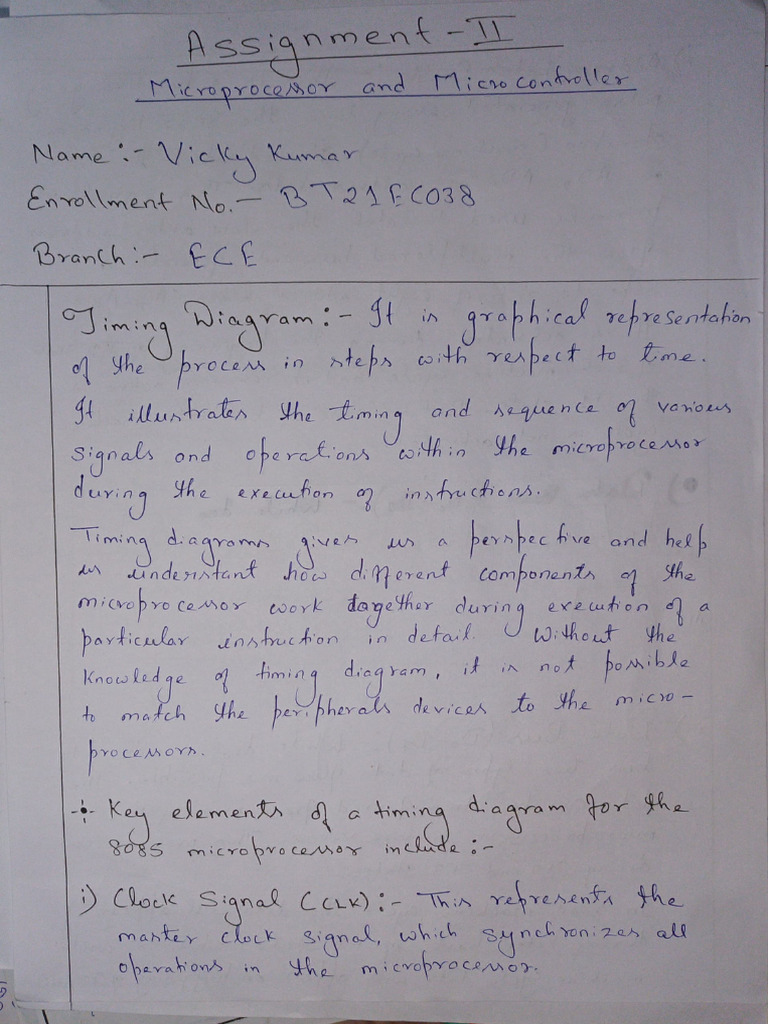 Assignment - II
Microprocessor and Microcontroller
Name :- Vicky Kumar
Enrollment No. - BT21EC038
Branch :- ECE
Timing Diagram :- It is graphical representation
of the process in steps with respect to time.
It illustrates the timing and sequence of various
signals and operations within the microprocessor
during the execution of instructions.
Timing diagrams gives us a perspective and help
us understant how different components of the
microprocessor work together during execution of a
particular instruction in detail. Without the
knowledge of timing diagram, it is not possible
to match the peripherals devices to the micro-
processors.
Key elements of a timing diagram for the
8085 microprocessor include :-
i) Clock Signal (CLK) :- This represents the
master clock signal, which synchronizes all
operations in the microprocessor.